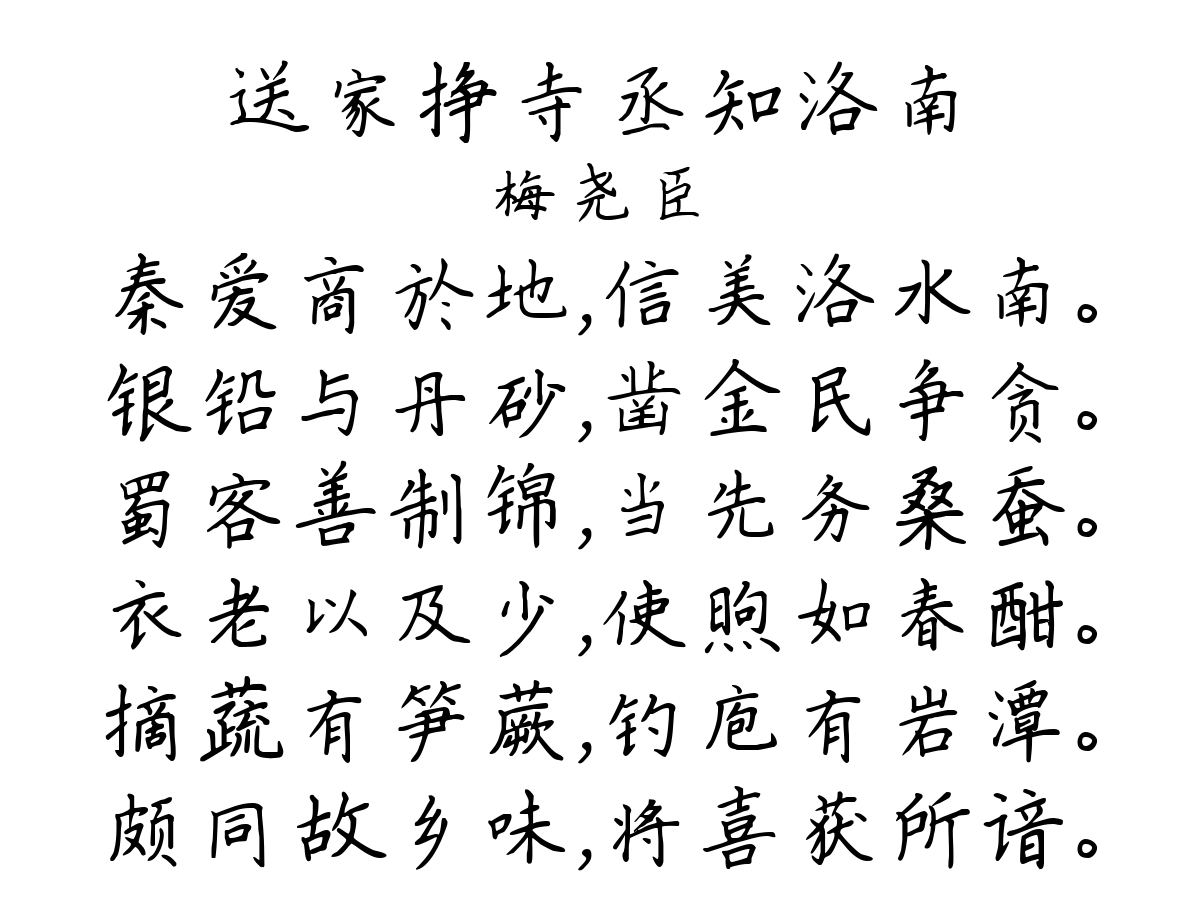 送家挣寺丞知洛南
梅尧臣
秦爱商於地,信美洛水南。
银铅与丹砂,凿金民争贪。
蜀客善制锦,当先务桑蚕。
衣老以及少,使煦如春酣。
摘蔬有笋蕨,钓庖有岩潭。
颇同故乡味,将喜获所谙。